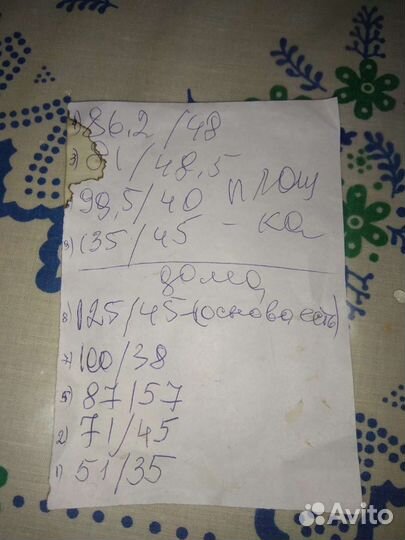 4) 86,2/48
3) 81/48,5
98,5/40 площ
9) 135/45 - ка
дома
8) 125/45-(основа есть)
7) 100/38
5) 87/57
2) 71/45
1) 51/35
Avito